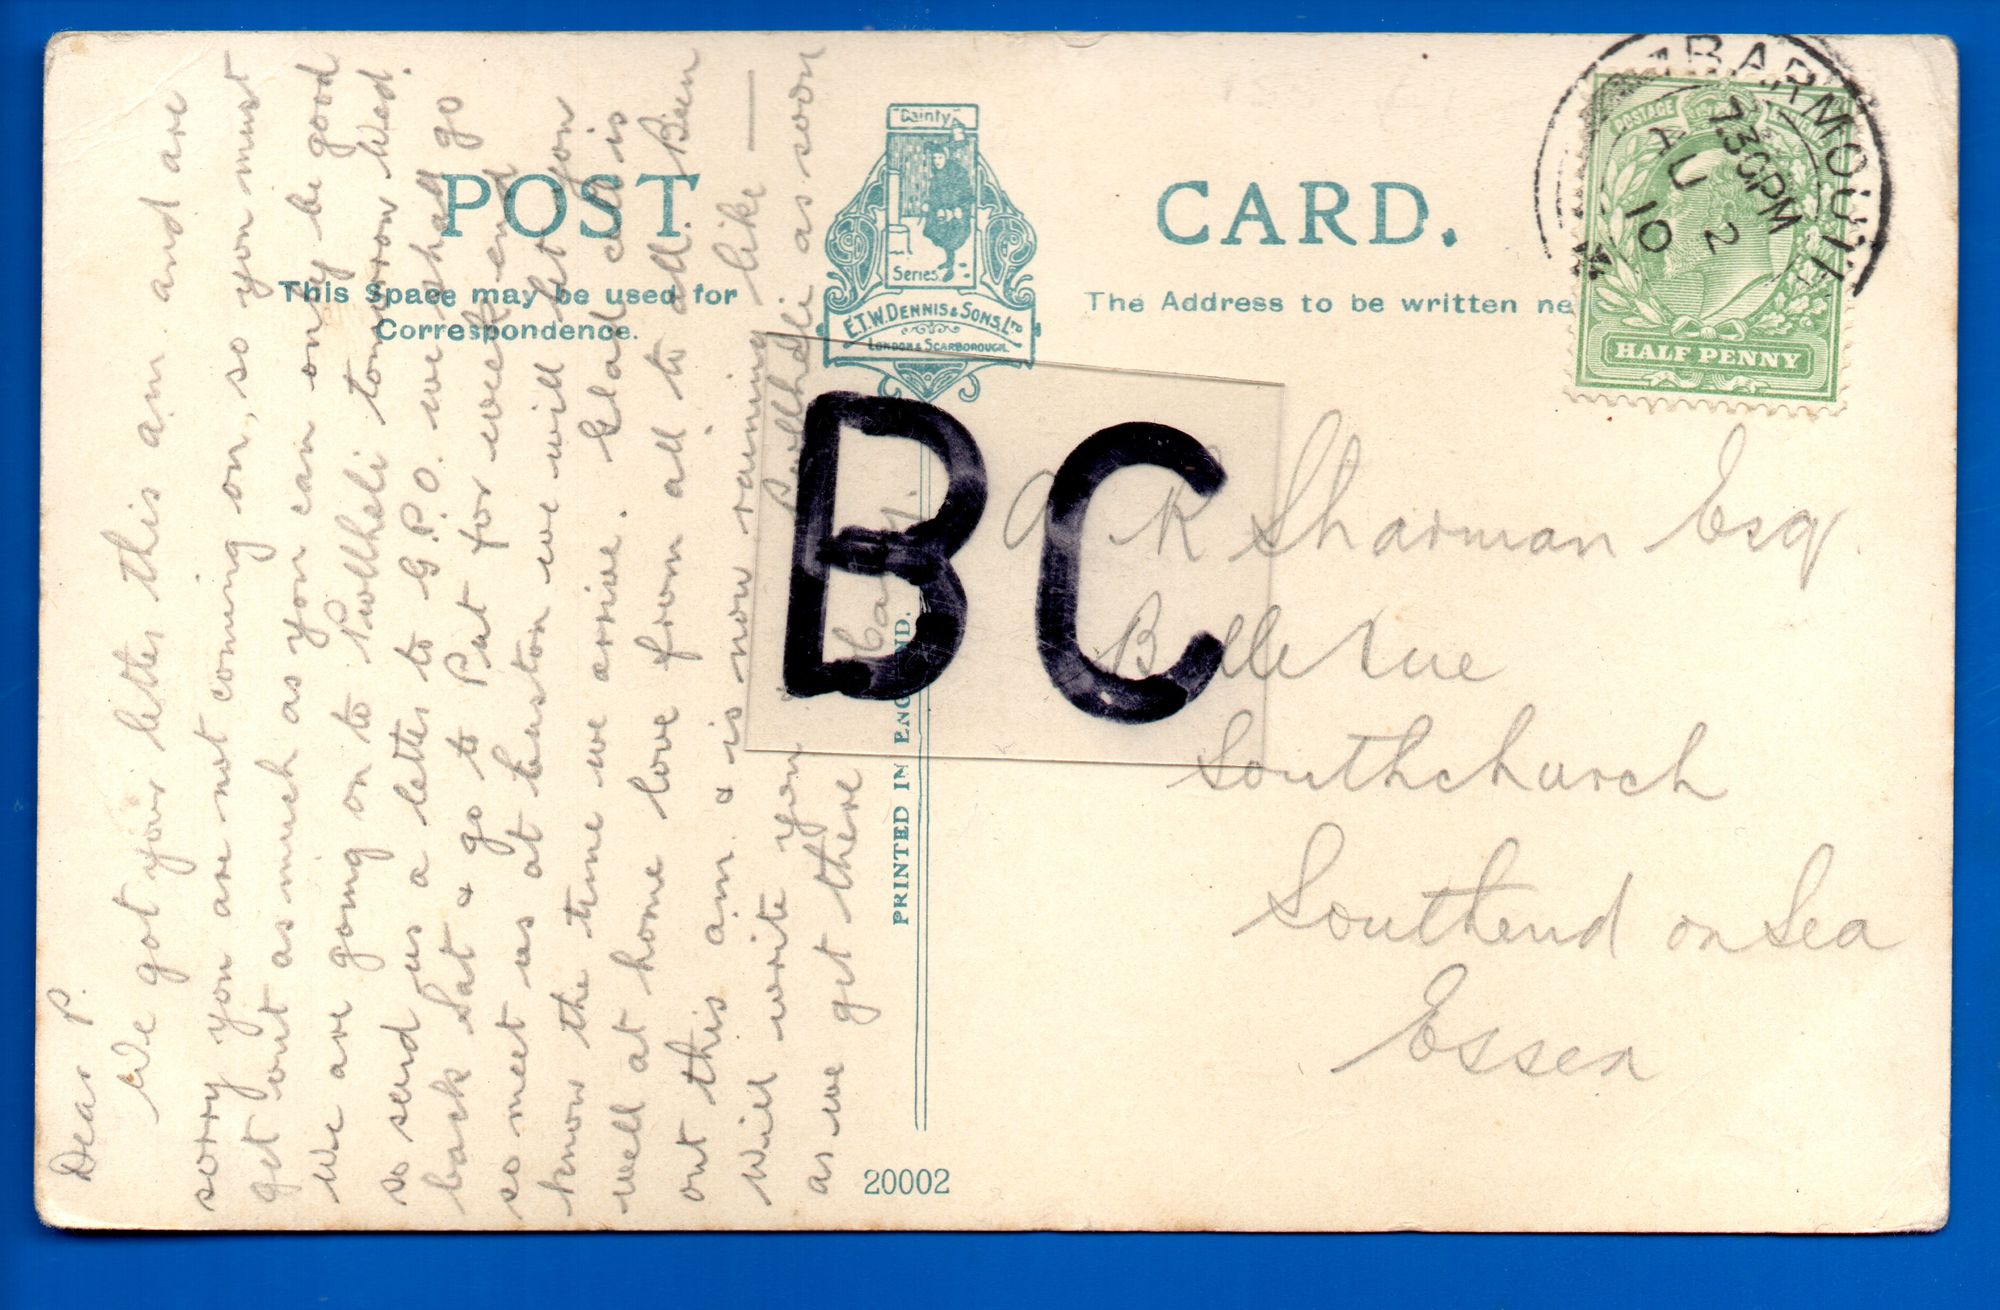 POST CARD.
This Space may be used for
Correspondence.
The Address to be written ne
"Dainty"
Series.
E.T.W. DENNIS & SONS, LTD
LONDON & SCARBOROUGH.
BARMOUTH
7.30 PM
AU 2
10
POSTAGE
HALF PENNY
BC
R Sharman Esq.
Southchurch
Southend on Sea
Essex
Dear P.
We got your letter this am. and are
sorry you are not coming on, so you must
get out as much as you can only be good
We are going on to Pwllheli tomorrow Wed.
so send us a letter to G.P.O. we shall go
back Sat & go to Put for week end
so meet us at Euston we will let you
know the time we arrive. Glad all is
well at home love from all to all. Been
out this am & is now raining like —
Will write you Pwllheli as soon
as we get there
PRINTED IN ENGLAND.
20002